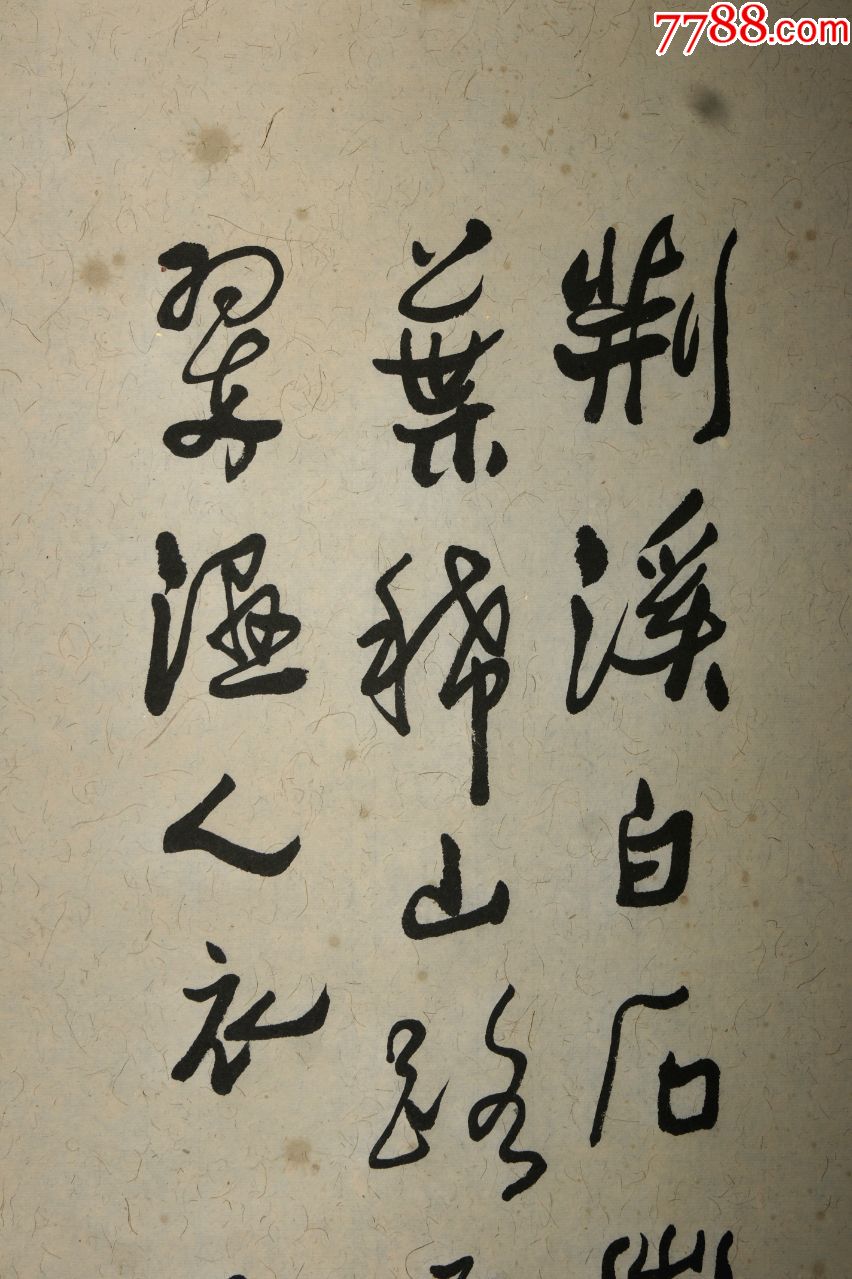 荆溪白石
葉稀山路
翠濕人衣
7788.com